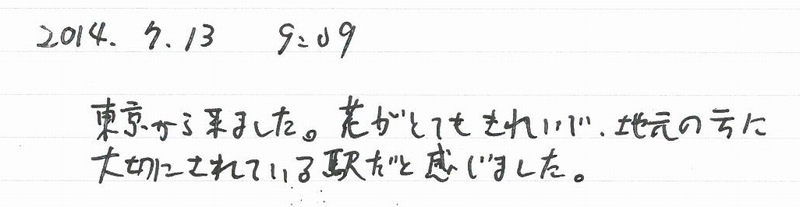 2014. 7. 13 9:09
東京から来ました。花がとてもきれいで、地元の方に
大切にされている駅だと感じました。